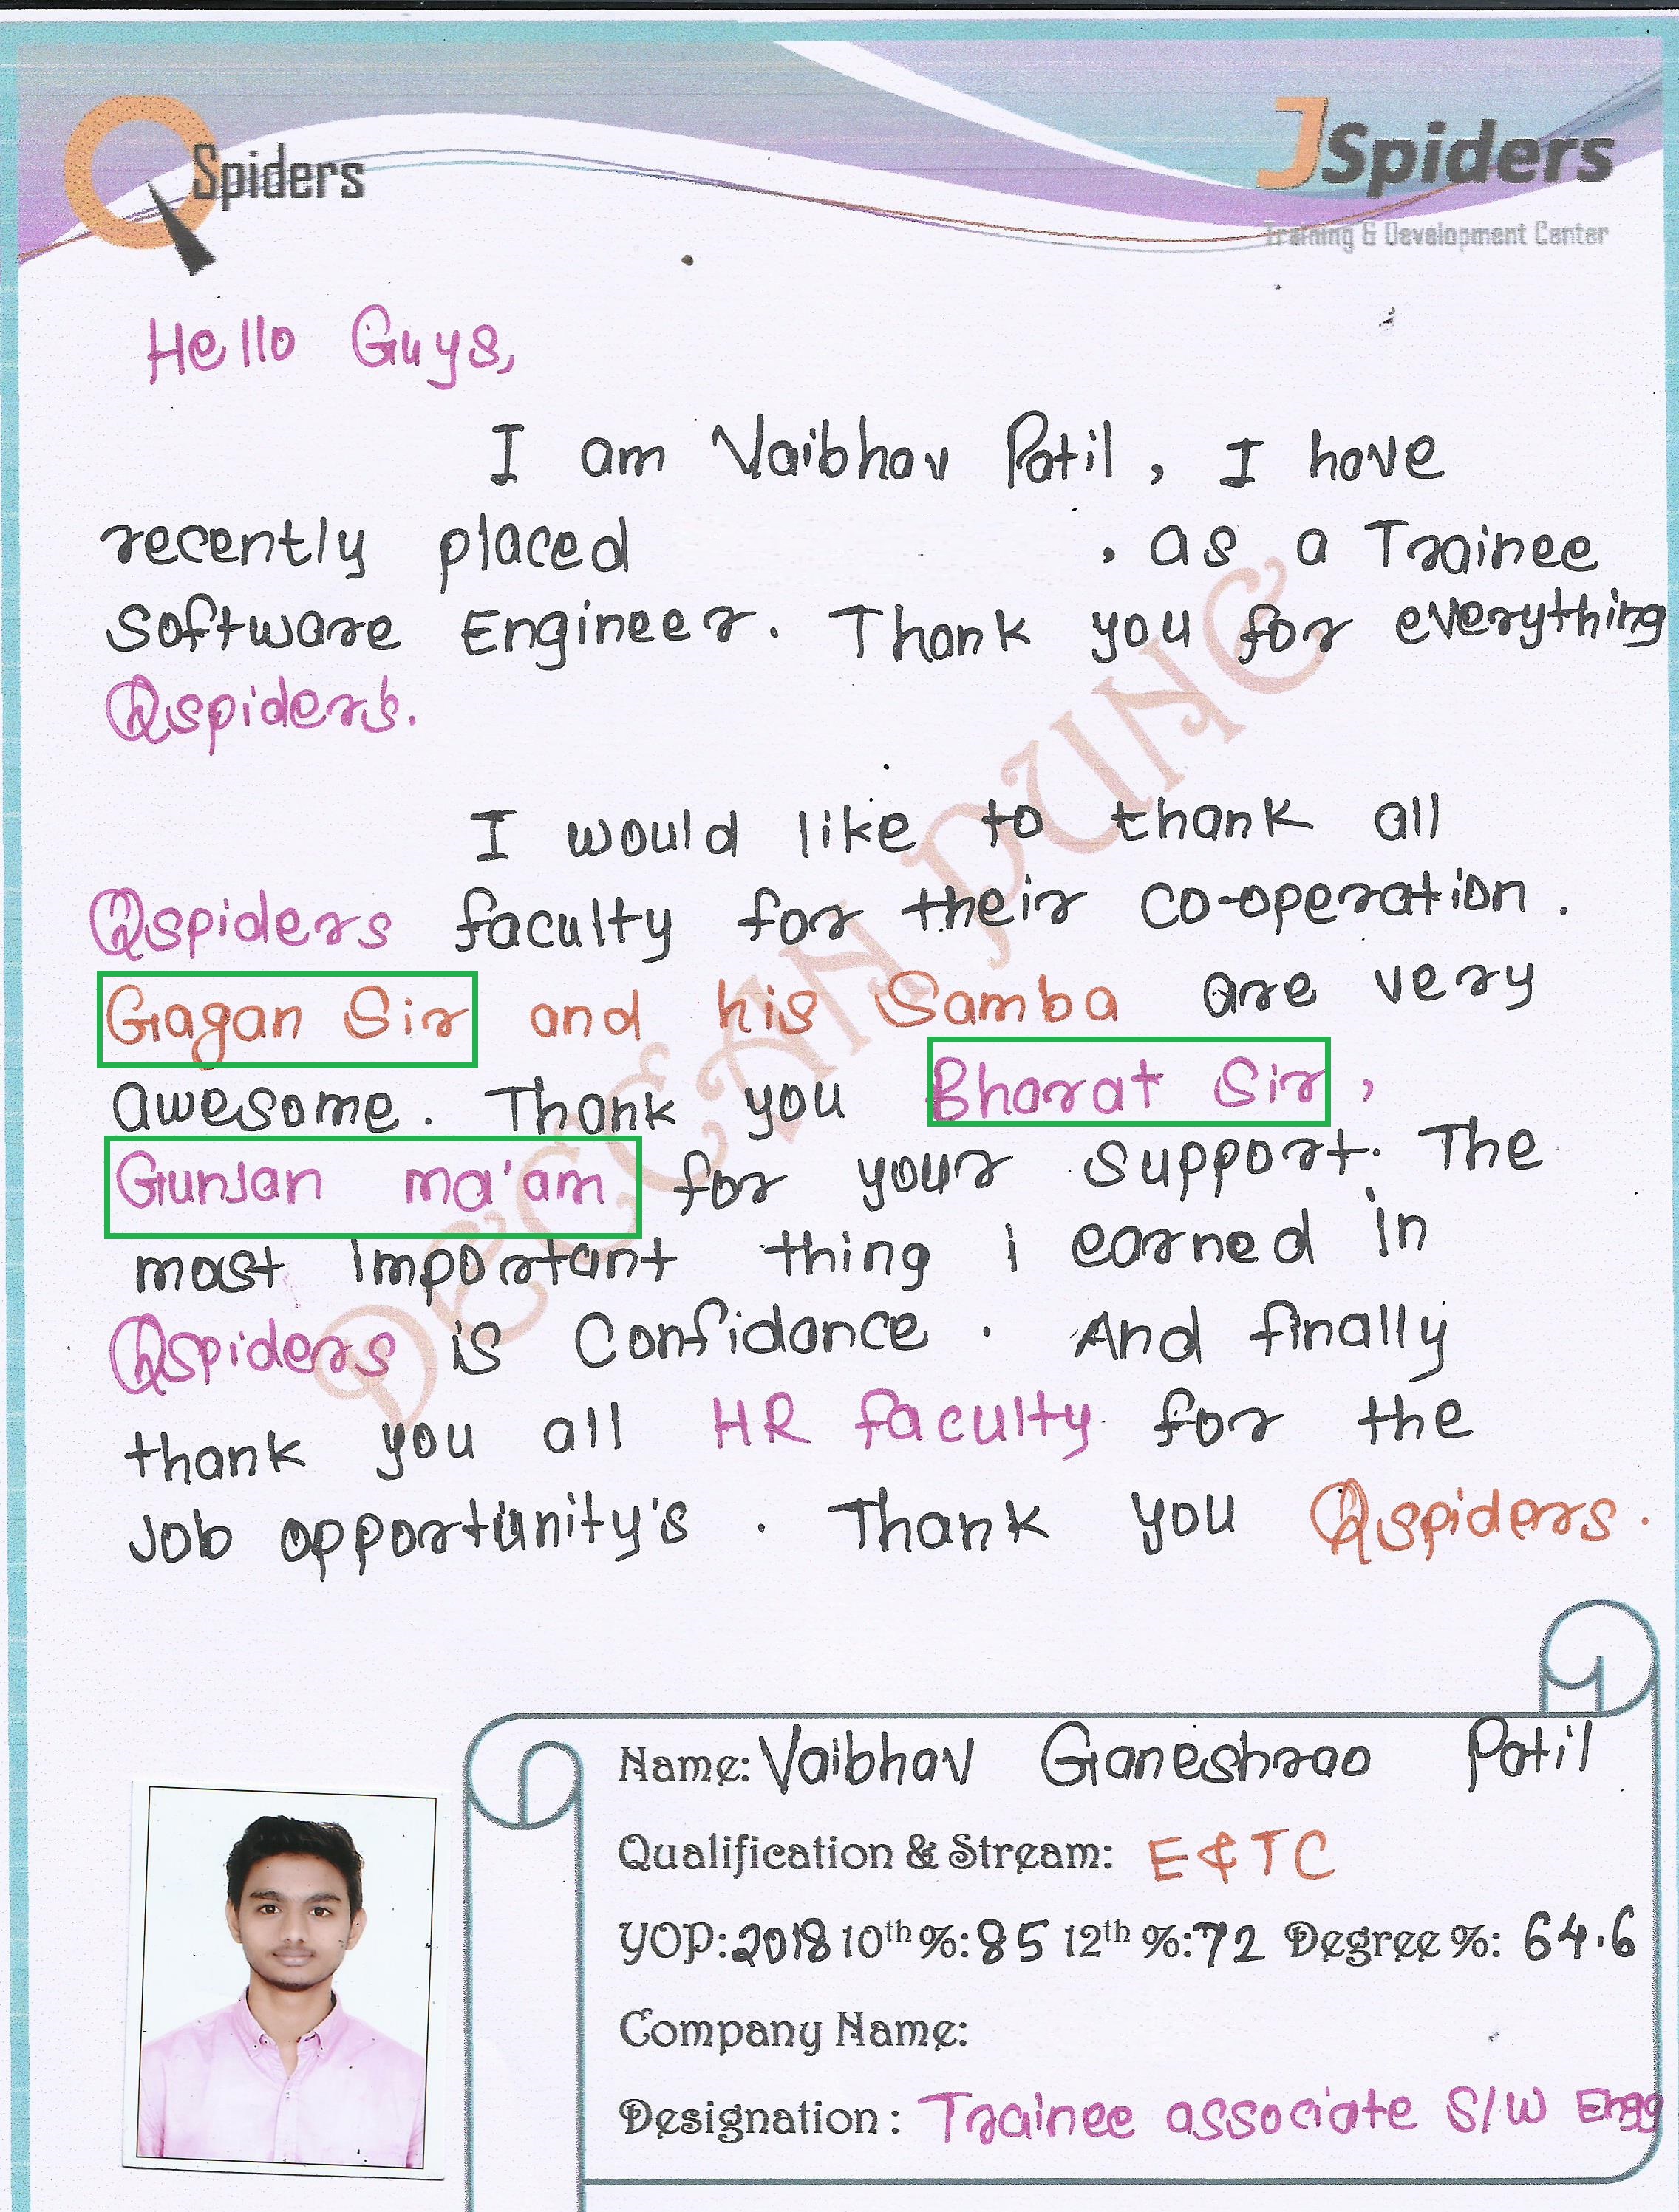 QSpiders
JSpiders
Training & Development Center
Hello Guys,
I am Vaibhav Patil, I have
recently placed . as a Trainee
Software Engineer. Thank you for everything
Qspider's.
I would like to thank all
Qspiders faculty for their co-operation.
Gagan Sir and his Samba are very
awesome. Thank you Bharat Sir,
Gunjan ma'am for your support. The
most important thing i earned in
Qspiders is Confidance. And finally
thank you all HR faculty for the
Job opportunity's. Thank you Qspiders.
DECCAN PUNE
Name: Vaibhav Ganeshrao Patil
Qualification & Stream: E&TC
YOP: 2018 10th %: 85 12th %: 72 Degree %: 64.6
Company Name:
Designation: Trainee associate S/W Engg